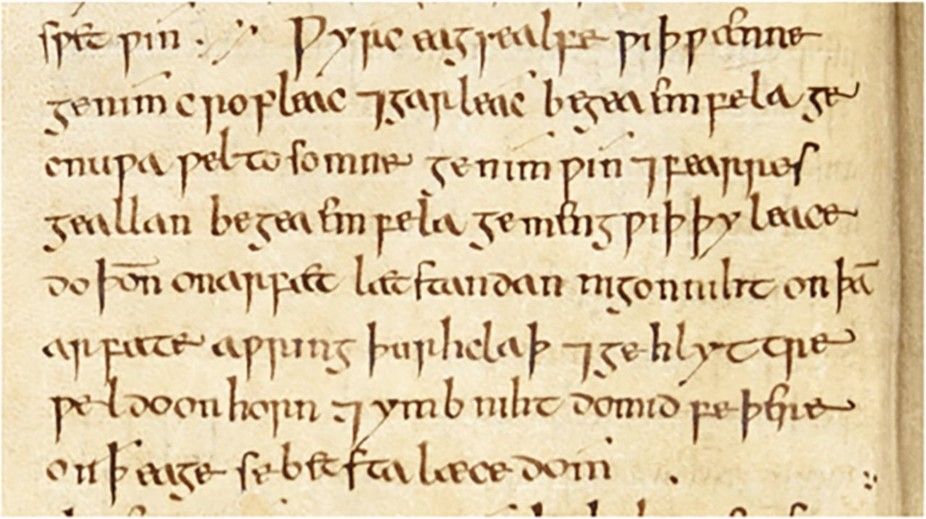 sƿet ƿin . Ƿyrc eagsealfe ƿiþ ƿænne
genim cropleac ⁊ garleac begea emfela ge
cnuƿa ƿel tosomne genim ƿin ⁊ fearres
geallan begea emfela gemeng ƿiþ þy leace
do þoñ on arfæt læt standan nigon niht on þā
arfæte aƿring þurh claþ ⁊ gehlyttre
ƿel do on horn ⁊ ymb niht do mid feþre
on ꝥ eage se betsta læcedom